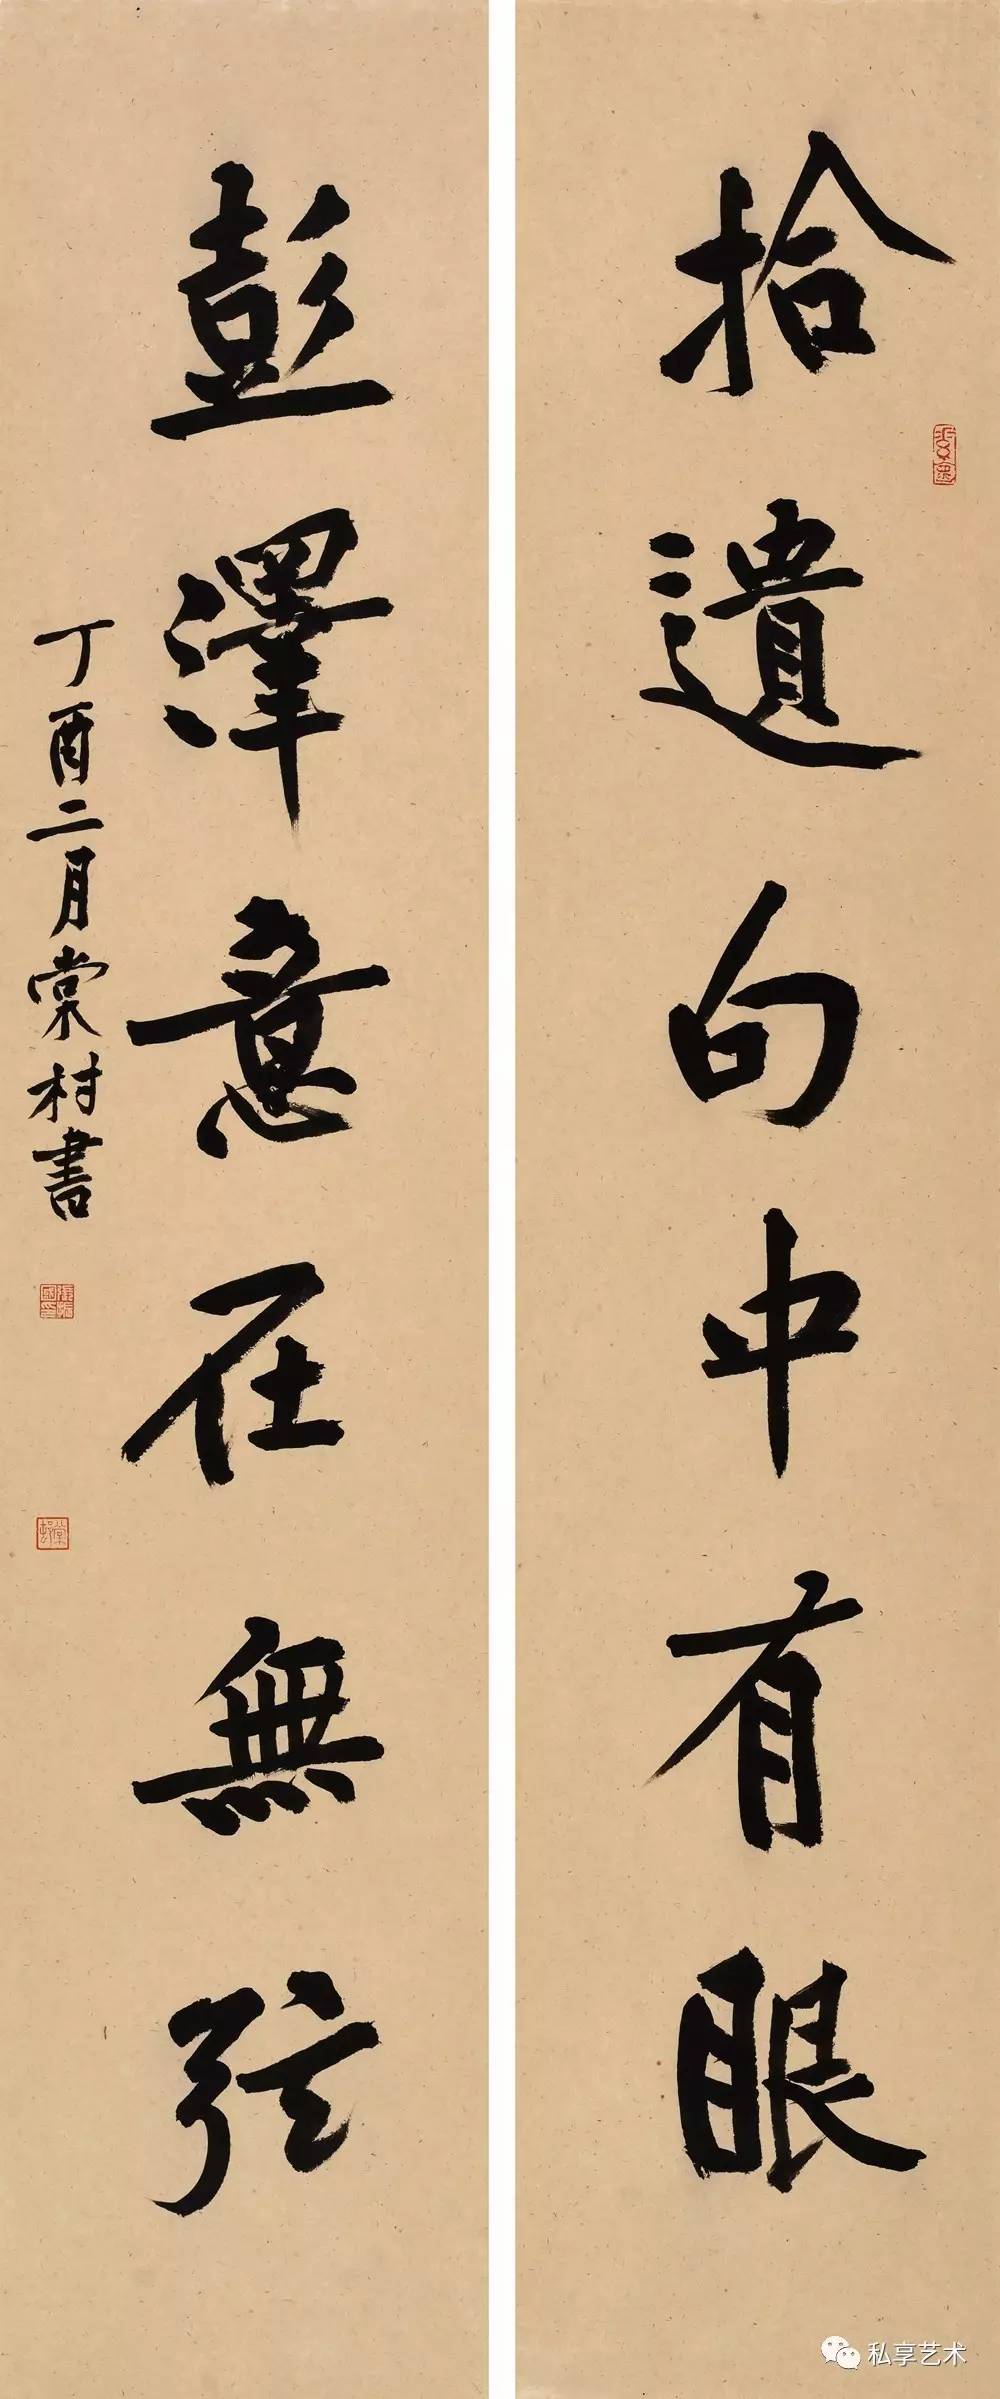 拾遺句中有眼
彭澤意在無弦
丁酉二月棠村書
私享艺术